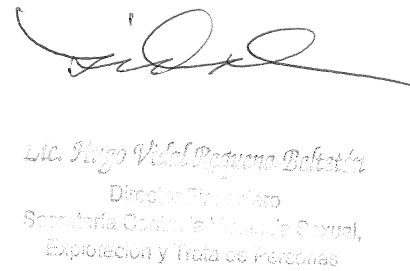 Lic. Hugo Vidal Requena Beltetón
Director Financiero
Secretaría Contra la Violencia Sexual,
Explotación y Trata de Personas